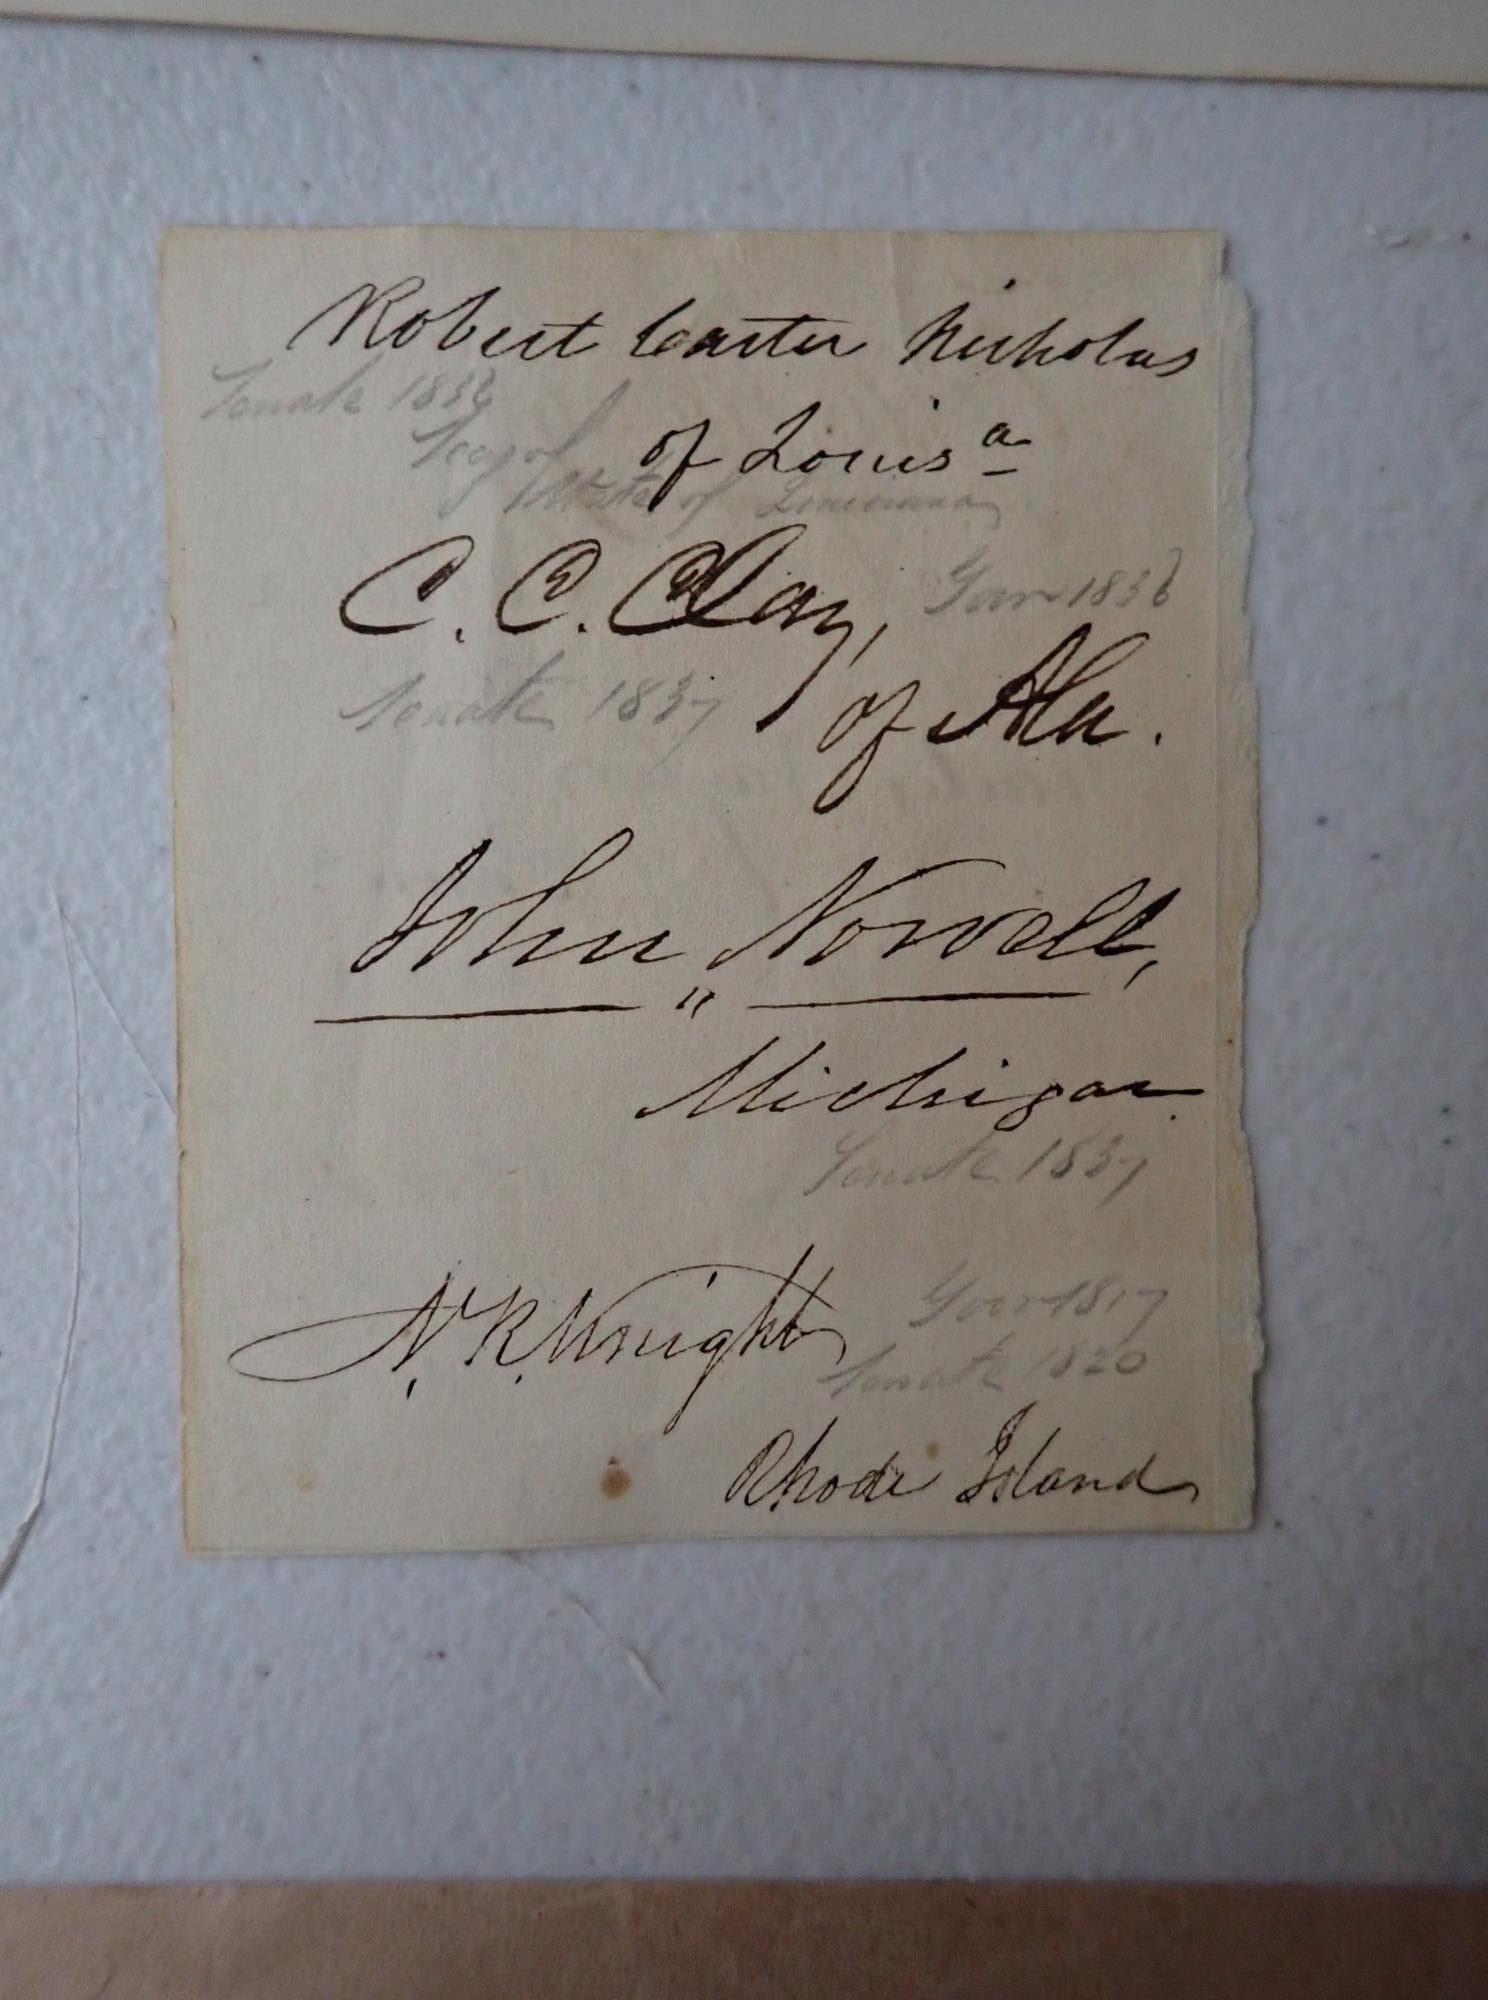 Robert Carter Nicholas
Senate 1836
of Louisa
Secy of
State of Louisiana
C. C. Clay, Gov 1836
Senate 1837
of Ala.
John Norvell,
"
Michigan.
Senate 1837
N. R. Knight Gov 1817
Senate 1820
Rhode Island